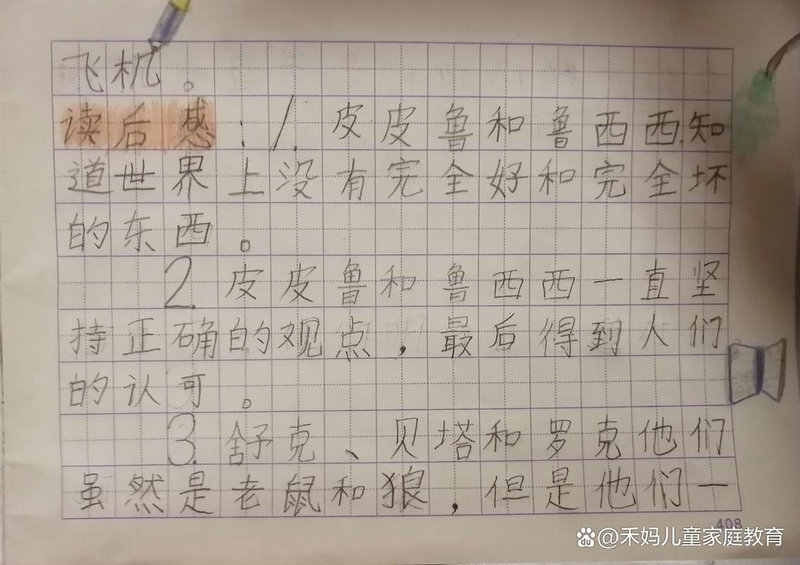 飞机。
读后感：1.皮皮鲁和鲁西西知
道世界上没有完全好和完全坏
的东西。
2.皮皮鲁和鲁西西一直坚
持正确的观点，最后得到人们
的认可。
3.舒克、贝塔和罗克他们
虽然是老鼠和狼，但是他们一
408
Bai du @禾妈儿童家庭教育